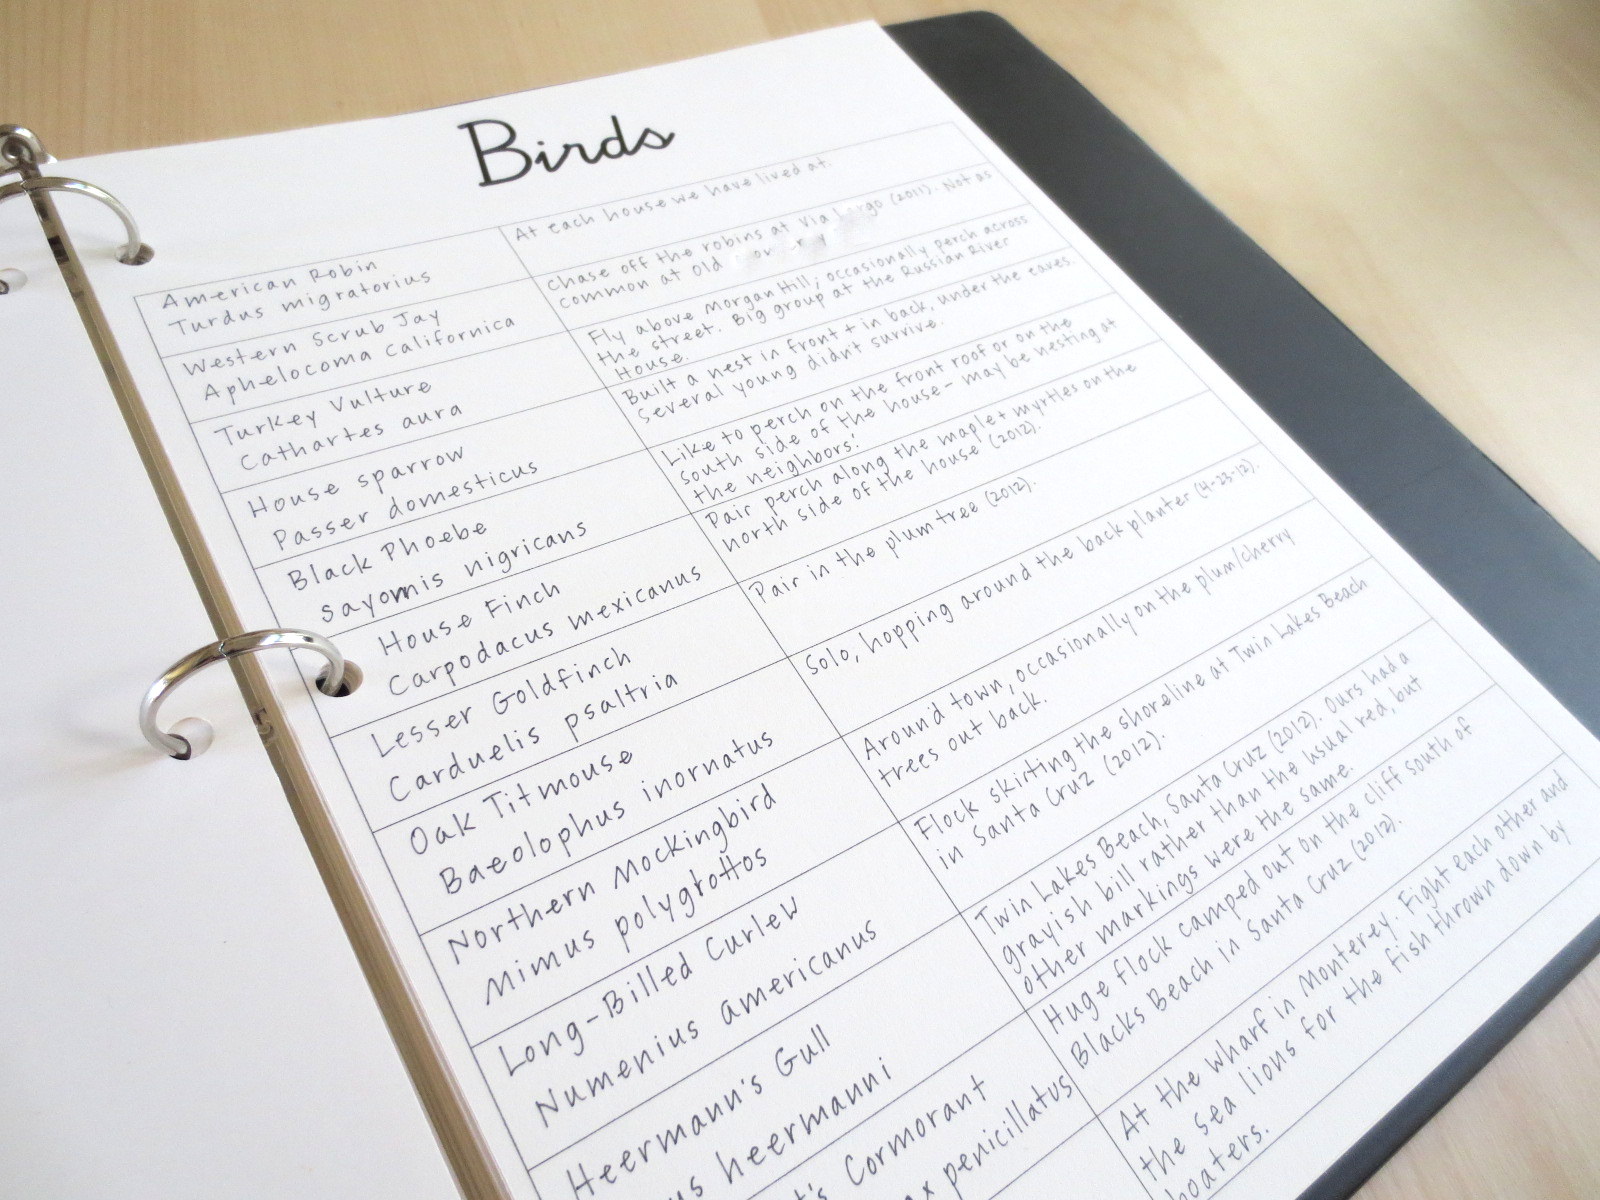 Birds
American Robin
Turdus migratorius
At each house we have lived at.
Western Scrub Jay
Aphelocoma californica
Chase off the robins at Via (2011). Not as
common at Old
Turkey Vulture
Cathartes aura
Fly above Morgan Hill; occasionally perch across
the street. Big group at the Russian River
House.
House sparrow
Passer domesticus
Built a nest in front + in back, under the eaves.
Several young didn't survive.
Black Phoebe
Sayornis nigricans
Like to perch on the front roof or on the
south side of the house - may be nesting at
the neighbors'.
House Finch
Carpodacus mexicanus
Pair perch along the maple + myrtles on the
north side of the house (2012).
Lesser Goldfinch
Carduelis psaltria
Pair in the plum tree (2012).
Oak Titmouse
Baeolophus inornatus
Solo, hopping around the back planter (4-23-12).
Northern Mockingbird
Mimus polygtottos
Around town, occasionally on the plum/cherry
trees out back.
Long-Billed Curlew
Numenius americanus
Flock skirting the shoreline at Twin Lakes Beach
in Santa Cruz (2012).
Heermann's Gull
us heermanni
Twin Lakes Beach, Santa Cruz (2012). Ours had a
grayish bill rather than the usual red, but
other markings were the same.
t's Cormorant
ax penicillatus
Huge flock camped out on the cliff south of
Blacks Beach in Santa Cruz (2012).
At the wharf in Monterey. Fight each other and
the sea lions for the fish thrown down by
boaters.